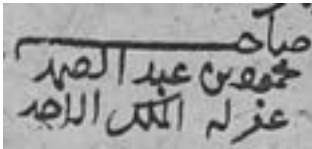 صاحبه
محمود بن عبد الصمد
غفر له الملك الاحد